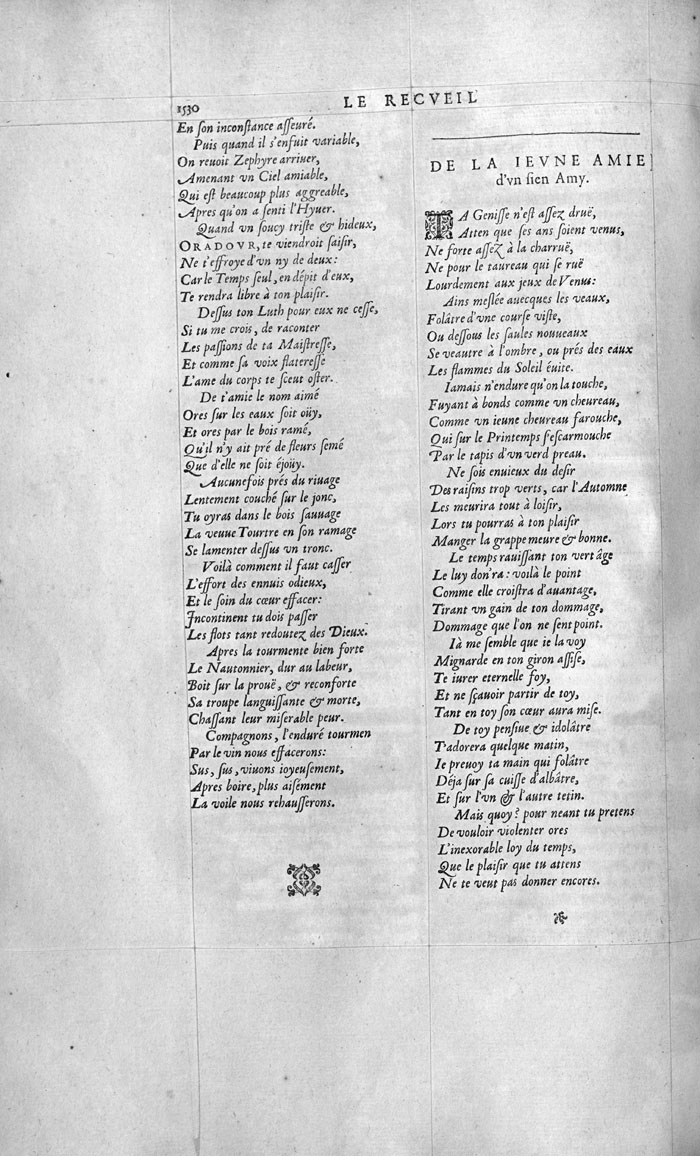 1530
LE RECVEIL
En ſon inconſtance aſſeuré.
Puis quand il s'enfuit variable,
On reuoit Zephyre arriuer,
Amenant vn Ciel amiable,
Qui eſt beaucoup plus aggreable,
Apres qu'on a ſenti l'Hyuer.
Quand vn ſoucy triſte & hideux,
ORADOVR, te viendroit ſaiſir,
Ne t'effroye d'vn ny de deux:
Car le Temps ſeul, en dépit d'eux,
Te rendra libre à ton plaiſir.
Deſſus ton Luth pour eux ne ceſſe,
Si tu me crois, de raconter
Les paſſions de ta Maiſtreſſe,
Et comme ſa voix flatereſſe
L'ame du corps te ſceut oſter.
De t'amie le nom aimé
Ores ſur les eaux ſoit oüy,
Et ores par le bois ramé,
Qu'il n'y ait pré de fleurs ſemé
Que d'elle ne ſoit éjoüy.
Aucunefois prés du riuage
Lentement couché ſur le jonc,
Tu oyras dans le bois ſauuage
La veuue Tourtre en ſon ramage
Se lamenter deſſus vn tronc.
Voilà comment il faut caſſer
L'effort des ennuis odieux,
Et le ſoin du cœur effacer:
Incontinent tu dois paſſer
Les flots tant redoutez des Dieux.
Apres la tourmente bien forte
Le Nautonnier, dur au labeur,
Boit ſur la prouë, & reconforte
Sa troupe languiſſante & morte,
Chaſſant leur miſerable peur.
Compagnons, l'enduré tourmen
Par le vin nous effacerons:
Sus, ſus, viuons ioyeuſement,
Apres boire, plus aiſément
La voile nous rehauſſerons.
DE LA IEVNE AMIE
d'vn ſien Amy.
TA Geniſſe n'eſt aſſez druë,
Atten que ſes ans ſoient venus,
Ne forte aſſez à la charruë,
Ne pour le taureau qui ſe ruë
Lourdement aux jeux de Venus:
Ains meſlée auecques les veaux,
Folâtre d'vne courſe viſte,
Ou deſſous les ſaules nouueaux
Se veautre à l'ombre, ou prés des eaux
Les flammes du Soleil éuite.
Iamais n'endure qu'on la touche,
Fuyant à bonds comme vn cheureau,
Comme vn ieune cheureau farouche,
Qui ſur le Printemps ſ'eſcarmouche
Par le tapis d'vn verd preau.
Ne ſois enuieux du deſir
Des raiſins trop verts, car l'Automne
Les meurira tout à loiſir,
Lors tu pourras à ton plaiſir
Manger la grappe meure & bonne.
Le temps rauiſſant ton vert âge
Le luy don'ra: voilà le point
Comme elle croiſtra d'auantage,
Tirant vn gain de ton dommage,
Dommage que l'on ne ſent point.
Ià me ſemble que ie la voy
Mignarde en ton giron aſſiſe,
Te iurer eternelle foy,
Et ne ſçauoir partir de toy,
Tant en toy ſon cœur aura miſe.
De toy penſiue & idolâtre
T'adorera quelque matin,
Ie preuoy ta main qui folâtre
Déja ſur ſa cuiſſe d'albâtre,
Et ſur l'vn & l'autre tetin.
Mais quoy? pour neant tu pretens
De vouloir violenter ores
L'inexorable loy du temps,
Que le plaiſir que tu attens
Ne te veut pas donner encores.